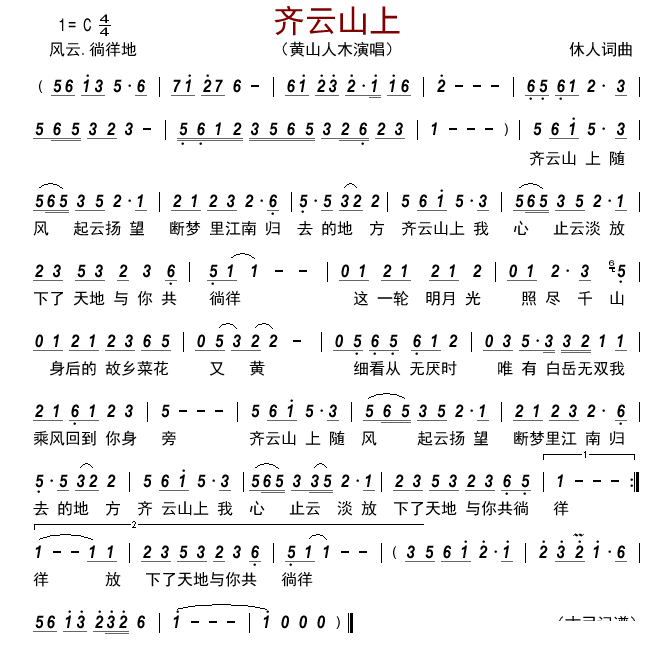 齐云山上
1= C 4/4
风云. 徜徉地 （黄山人木演唱） 休人词曲
( 56 13 5· 6 | 71 276 - | 61 23 2·1 16 | 2 - - - | 65 61 2· 3 |
5 65 3 2 3 - | 5 6 1 2 3 5 6 5 3 2 6 2 3 | 1 - - - ) | 5 61 5· 3 |
齐云山 上 随
565 3 5 2·1 | 21 232·6 | 5·532 2 | 5 61 5·3 | 565 35 2·1 |
风 起云扬 望 断梦 里江南 归 去 的地 方 齐云山上 我 心 止云淡 放
23 53 2 3 6 | 51 1 - - | 01 21 21 2 | 01 2· 3 5 |
下了 天地 与 你 共 徜徉 这 一轮 明月 光 照 尽 千 山
01 21 23 65 | 05 32 2 - | 05 65 61 2 | 03 5·3 321 1 |
身后的 故乡菜花 又 黄 细看从 无厌时 唯 有 白岳无双我
21 61 23 | 5 - - - | 5 61 5·3 | 565 35 2·1 | 21 23 2·6 |
乘风回到 你身 旁 齐云山 上 随 风 起云扬 望 断梦里江 南 归
5·532 2 | 5 61 5·3 | 565 3 35 2·1 | 23 53 23 65 | 1 - - - :|
去 的地 方 齐 云山上 我 心 止云 淡 放 下了天地 与你共徜 徉
1 - - 1 1 | 23 53 2 3 6 | 51 1 - - | ( 3 5 6 1 2·1 | 2 32 1·6 |
徉 放 下了天地与你共 徜徉
56 13 232 6 | 1 - - - | 1 0 0 0 ) |